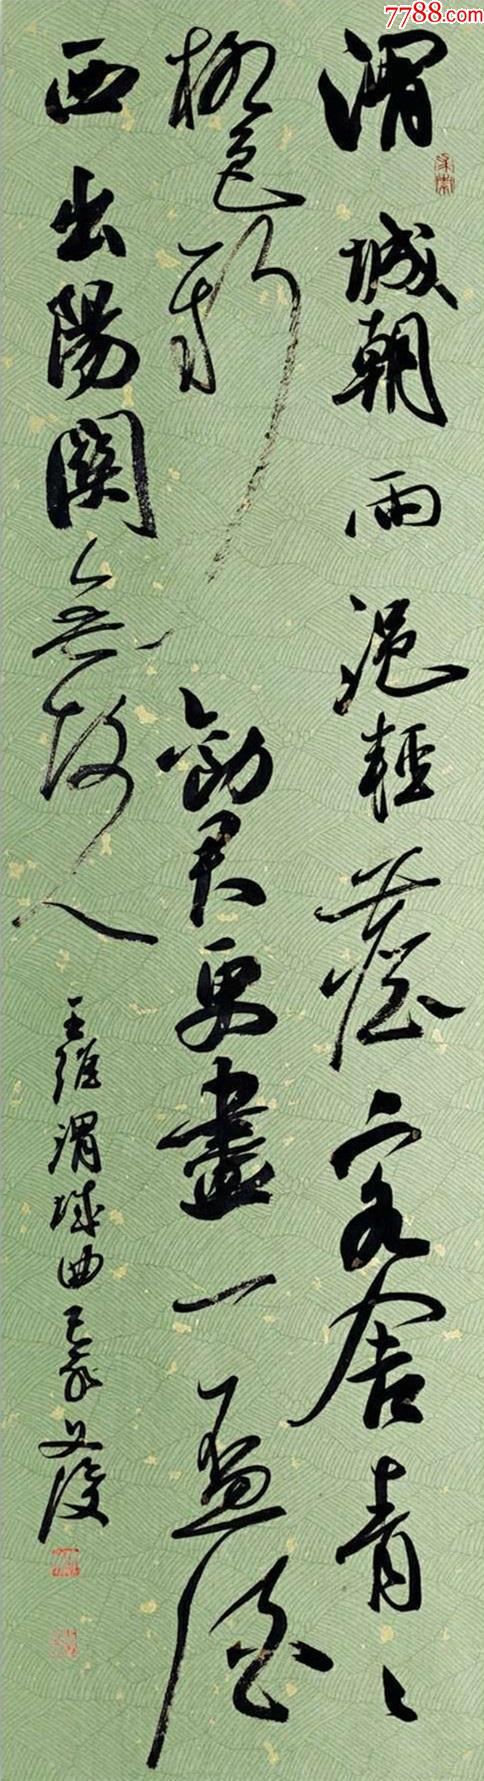 7788.com
渭城朝雨浥輕塵客舍青〻
柳色新勸君更盡一盃酒
西出陽關無故人
王維渭城曲己亥